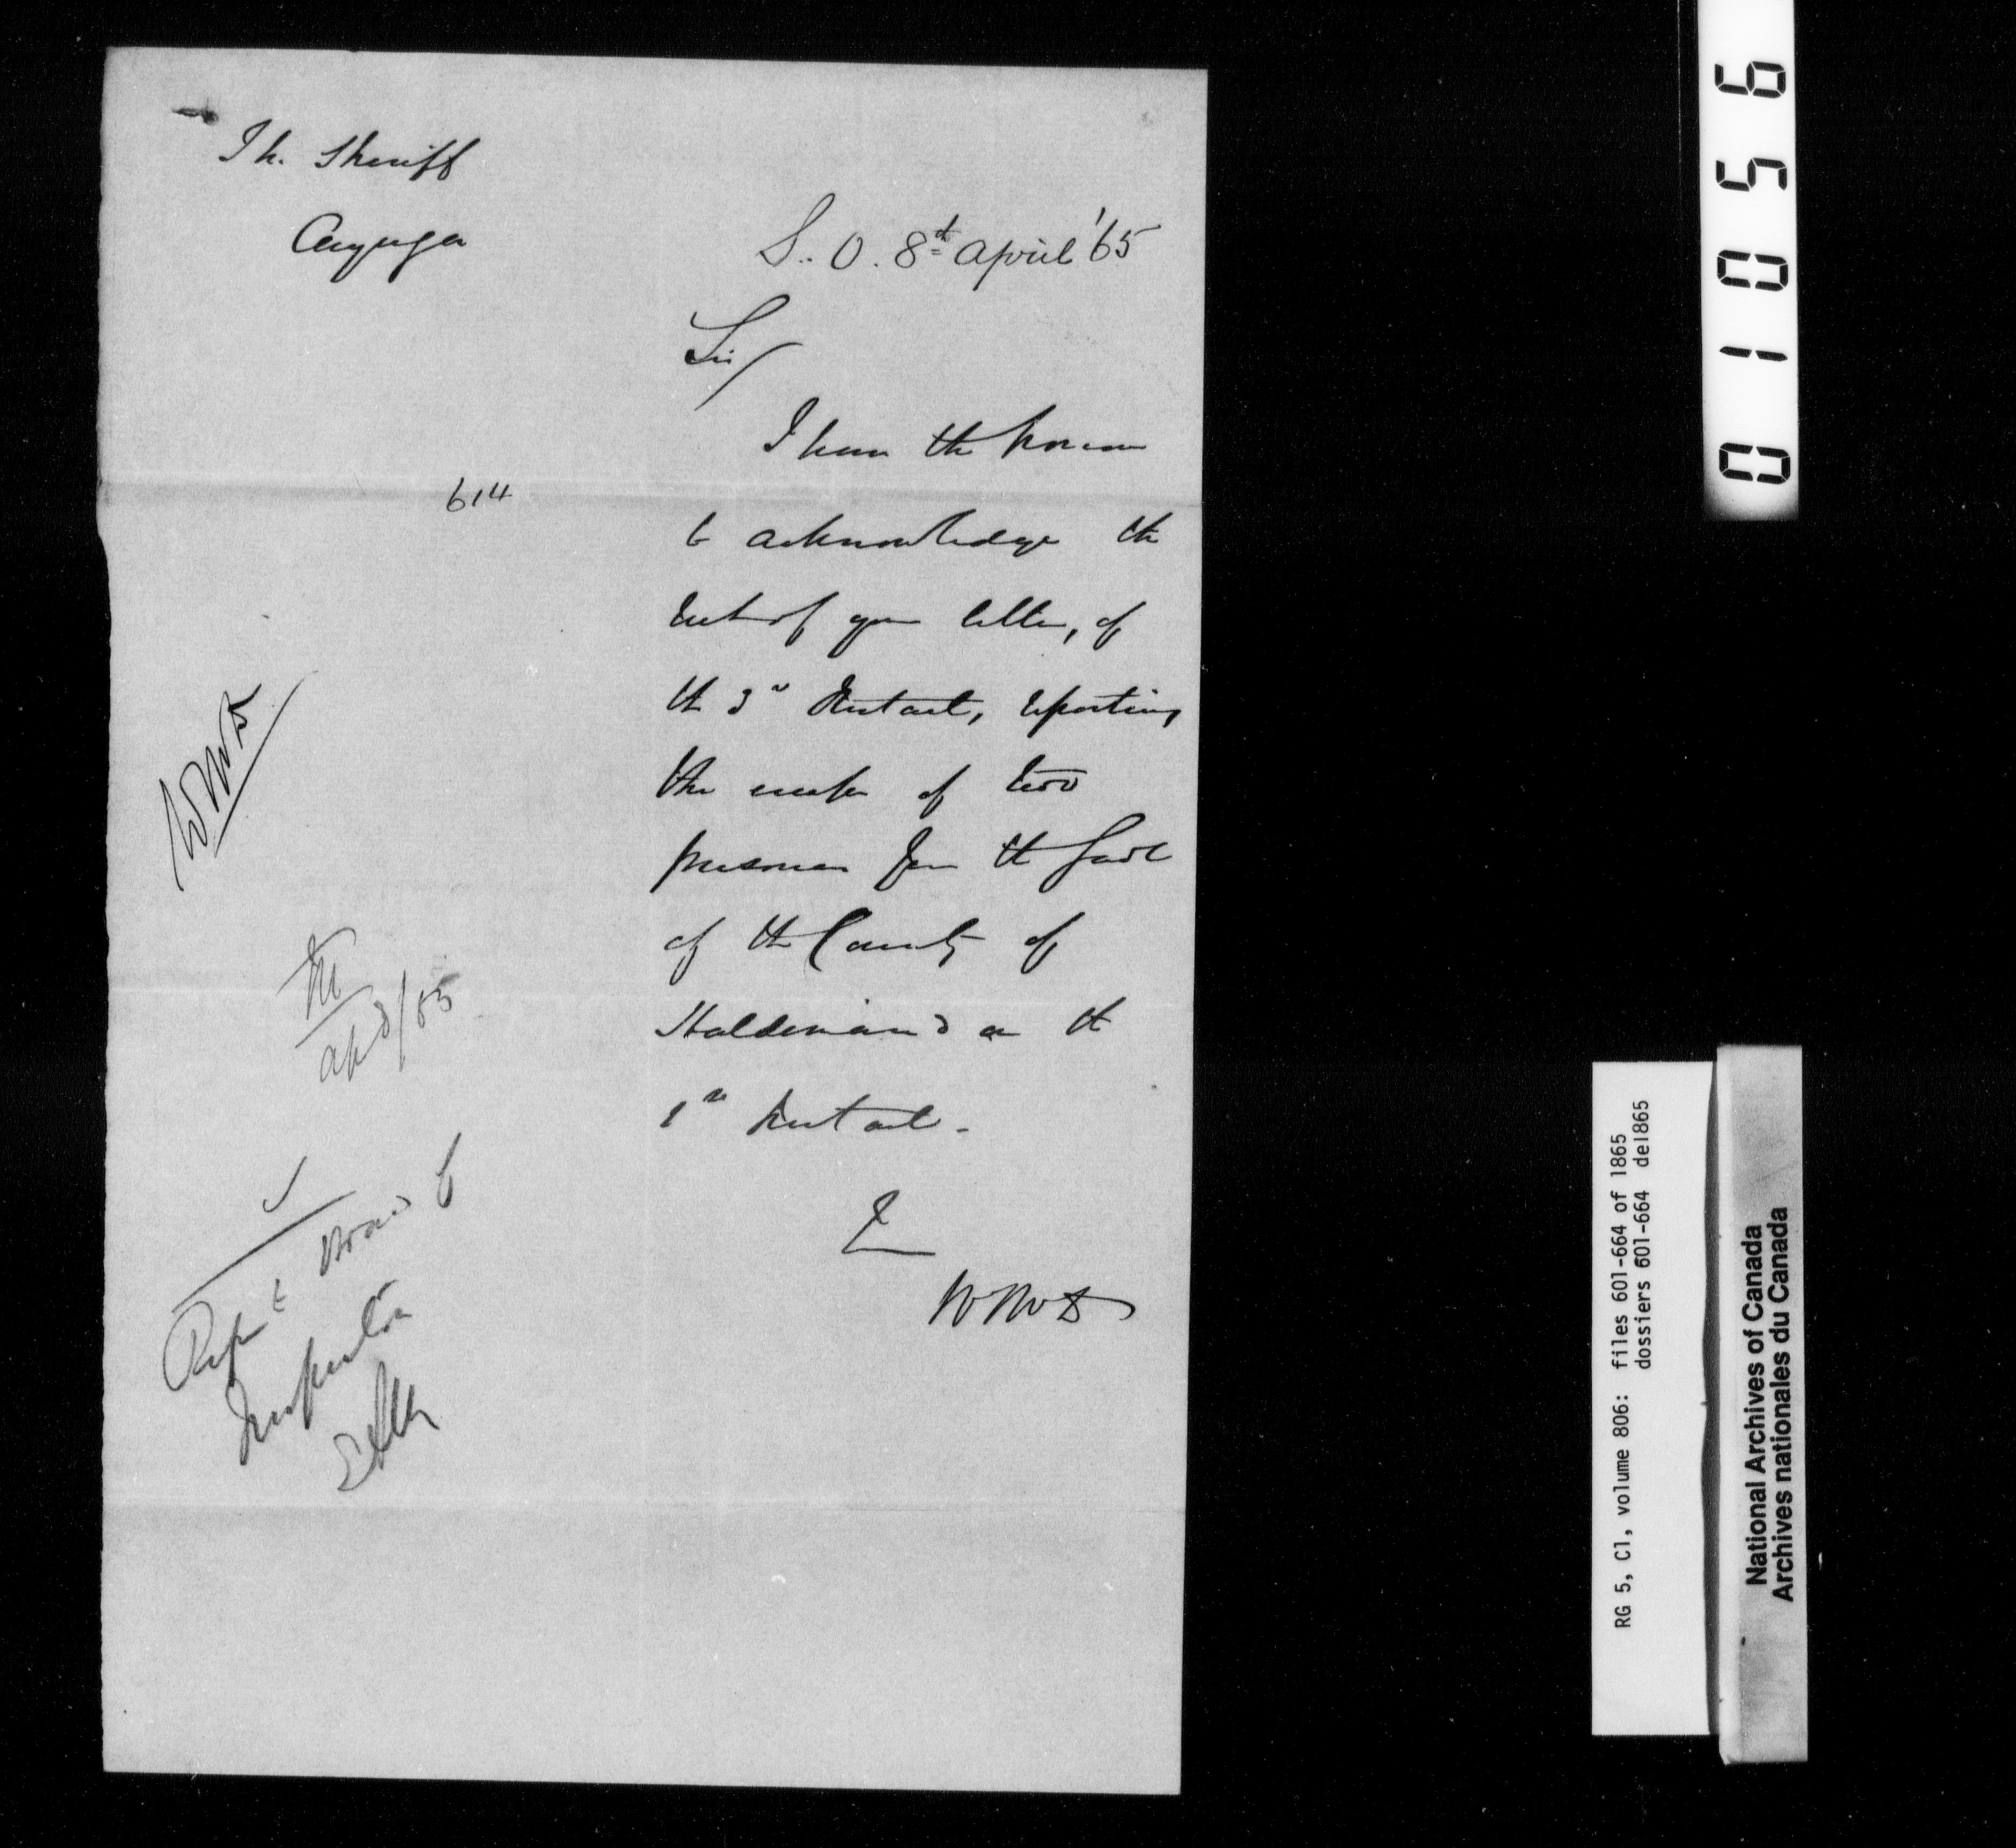 The Sheriff
Cayuga
S.O. 8th April '65
Sir/
I have the honour
614
to acknowledge the
rect of your letter, of
the 3rd Instant, reporting
the escape of two
prisoners from the Gaol
of the County of
Haldimand on the
1st Instant.
ap 8/65
Rept
to
Inspector
RG 5, C1, volume 806: files 601-664 of 1865
dossiers 601-664 de1865
National Archives of Canada
Archives nationales du Canada
01056